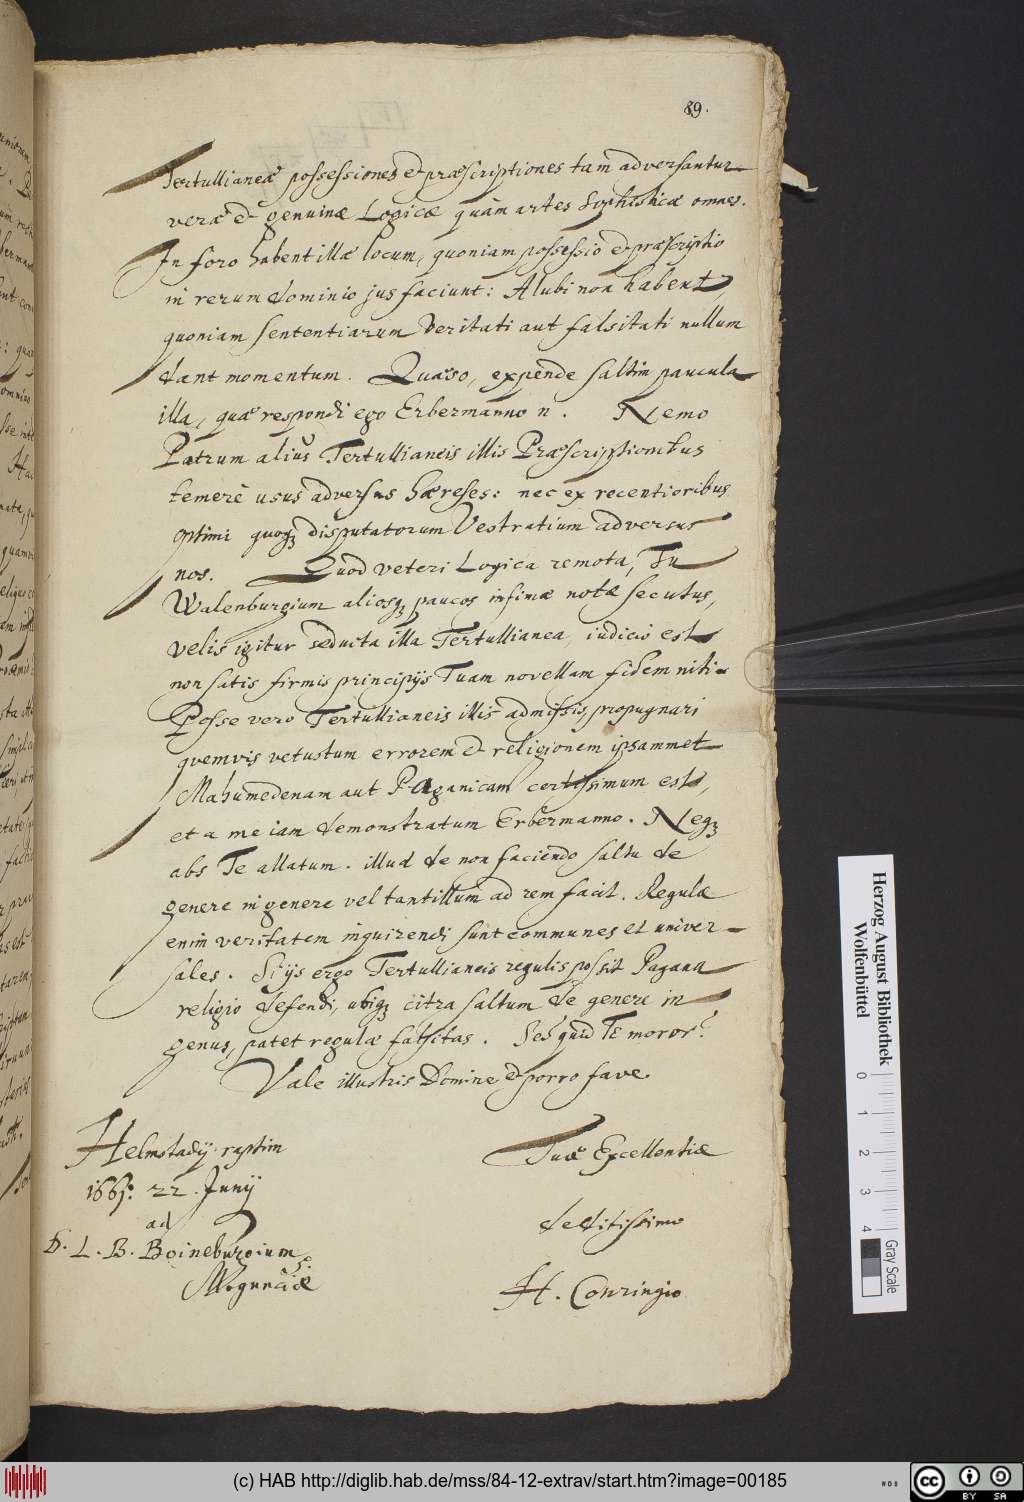 89.
Tertullianeæ possessiones et præscriptiones tam adversantur
veræ et genuinæ Logicæ quàm artes Sophisticæ omnes.
In foro habent illæ locum, quoniam possessio et præscriptio
in rerum dominio jus faciunt: Alubi non habent,
quoniam sententiarum veritati aut falsitati nullum
dant momentum. Quæso, expende saltim paucula
illa, quæ respondi ego Erbermanno n. Nemo
Patrum alius Tertullianeis illis Præscriptionibus
temerè usus adversus hæreses: nec ex recentioribus
optimi quoqꝫ disputatorum Vestratium adversus
nos. Quod veteri Logica remota, Tu
Walenburgium aliosqꝫ paucos infimæ notæ secutus,
velis igitur seducta illa Tertullianea, iudicio est
non satis firmis principijs Tuam novellam fidem niti.
Posse vero Tertullianeis illis admissis, propugnari
quemvis vetustum errorem et religionem ipsammet
Mahumedenam aut Paganicam certissimum est,
et a me iam demonstratum Erbermanno. Neqꝫ
abs Te allatum. illud de non faciendo saltu de
genere in genere vel tantillum ad rem facit. Regulæ
enim veritatem inquirendi sunt communes et univer-
sales. Si ijs ergo Tertullianeis regulis possit Pagana
religio defendi, ubiqꝫ citra saltum de genere in
genus, patet regulæ falsitas. Sed quid Te moror?
Vale illustris Domine et porro fave.
Helmstadij raptim
1665. 22. Junij
ad
D. L. B. Boineburgium
Moguntiæ
Tuæ Excellentiæ
deditissimo
H. Conringio
Herzog August Bibliothek
Wolfenbüttel
0 1 2 3 4
Gray Scale
(c) HAB http://diglib.hab.de/mss/84-12-extrav/start.htm?image=00185
cc BY SA